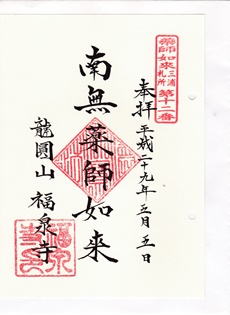 薬師如来
三浦札所
第十二番
奉拝 平成二十九年三月五日
南無薬師如来
龍圓山 福泉寺